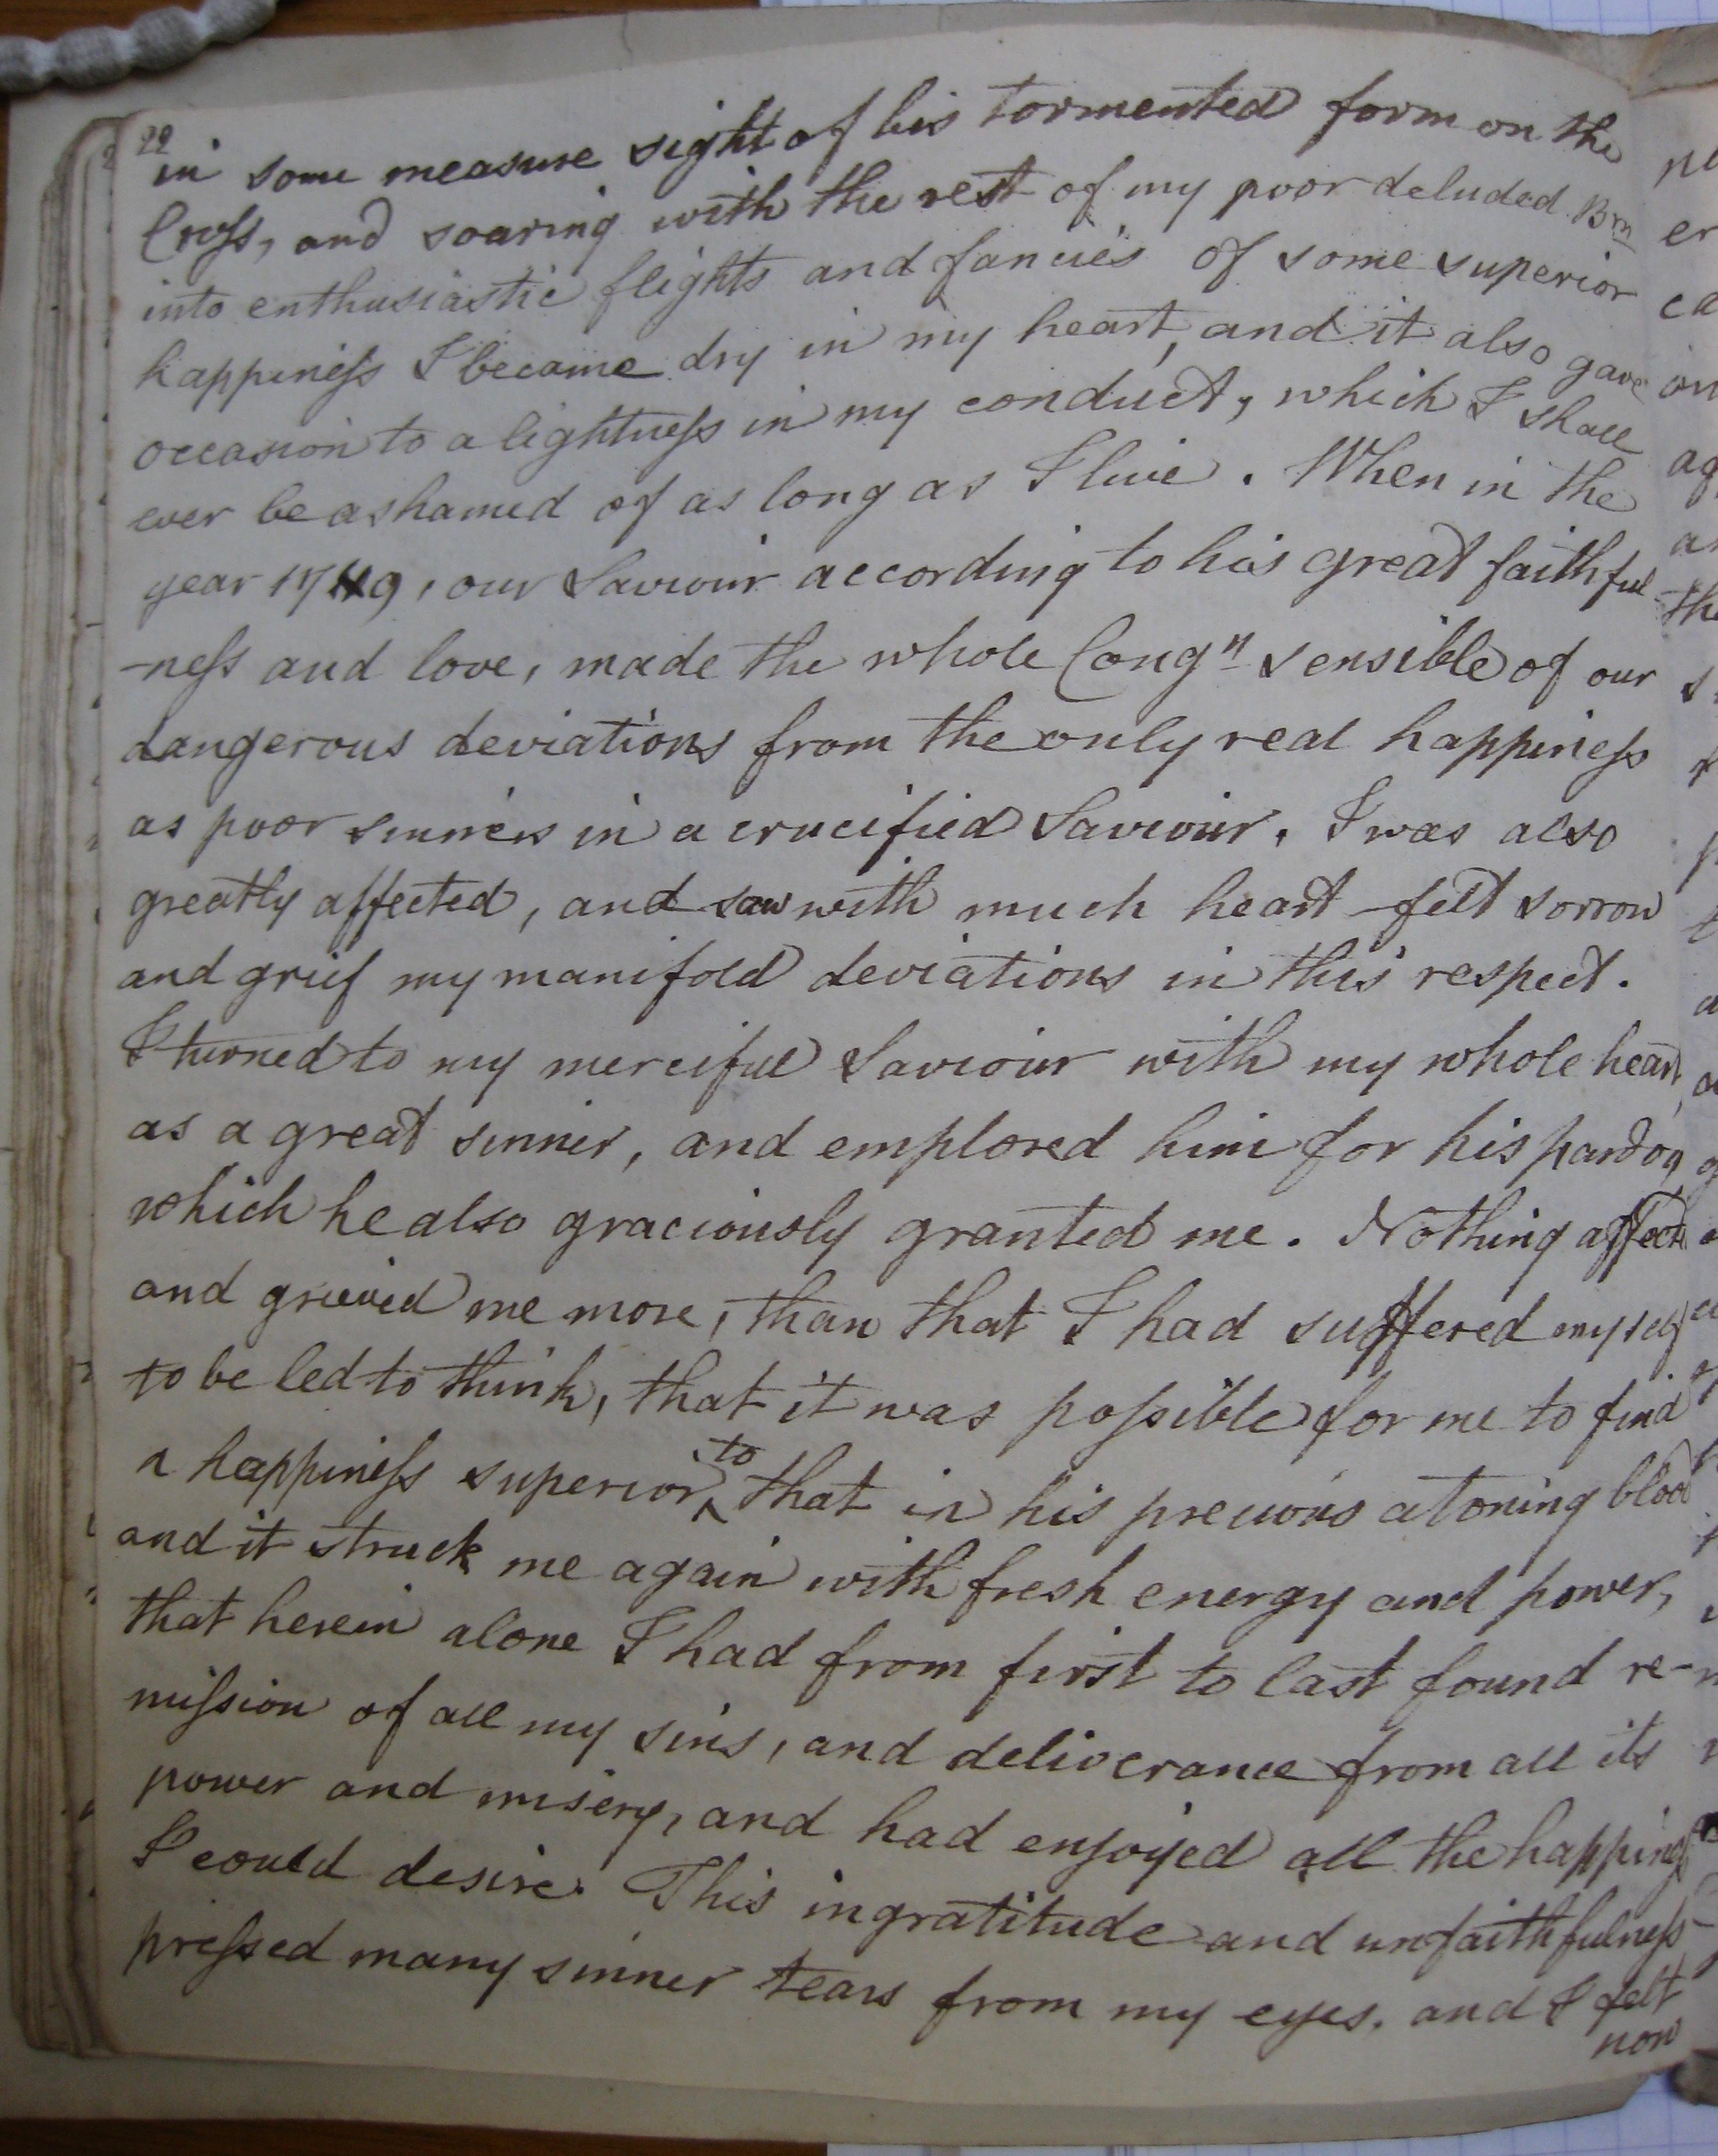 22
in some measure sight of his tormented form on the
Cross, and soaring with the rest of my poor deluded Brn
into enthusiastic flights and fancies of some superior
happiness I became dry in my heart, and it also gave
occasion to a lightness in my conduct, which I shall
ever be ashamed of as long as I live. When in the
year 1749, our Saviour according to his great faithful-
-ness and love, made the whole Congn sensible of our
dangerous deviations from the only real happiness
as poor sinners in a crucified Saviour, I was also
greatly affected, and saw with much heart-felt sorrow
and grief my manifold deviations in this respect.
I turned to my merciful Saviour with my whole heart,
as a great sinner, and emplored him for his pardon
which he also graciously granted me. Nothing affected
and grieved me more, than that I had suffered myself
to be led to think, that it was possible for me to find
a happiness superior to that in his precious atoning blood
and it struck me again with fresh energy and power,
that herein alone I had from first to last found re-
mission of all my sins, and deliverance from all its
power and misery, and had enjoyed all the happiness
I could desire. This ingratitude and unfaithfulness
pressed many sinner tears from my eyes, and I felt
now